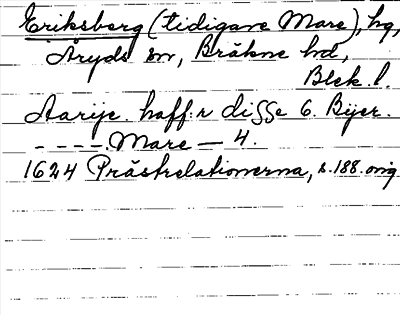 Eriksberg (tidigare Mare), hg,
Åryds sn, Bräkne hd,
Blek. l.
Aarije. haff:r disse 6. Bÿer.
- - - - Mare — 4.
1624 Prästrelationerna, s. 188. orig